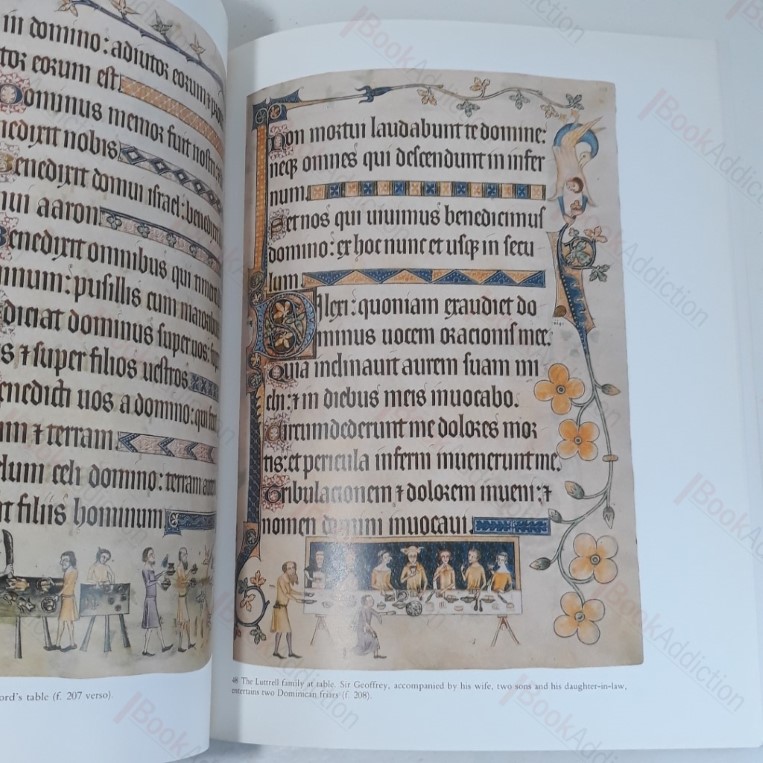 in domino: adiutor eorum ⁊
tor eorum est.
Dominus memor fuit
nedixit nobis
enedixit domui israel:
mui aaron.
Benedixit omnibus qui
mnum: pusillis cum
diciat dominus super uos:
s ⁊ super filios uestros.
enedicti uos a domino: qui
um ⁊ terram
elum celi domino: terram
it filiis hominum
ord's table (f. 207 verso).
Non mortui laudabunt te domine:
neqꝫ omnes qui descendunt in infer
num.
Set nos qui uiuimus benedicimus
domino: ex hoc nunc et usqꝫ in secu
lum.
Dilexi: quoniam exaudiet do
minus uocem orationis mee.
Quia inclinauit aurem suam mi
chi: ⁊ in diebus meis inuocabo.
Circumdederunt me dolores mor
tis: et pericula inferni inuenerunt me.
Tribulacionem ⁊ dolorem inueni: ⁊
nomen domini inuocaui.
48 The Luttrell family at table. Sir Geoffrey, accompanied by his wife, two sons and his daughter-in-law,
entertains two Dominican friars (f. 208).
BookAddiction